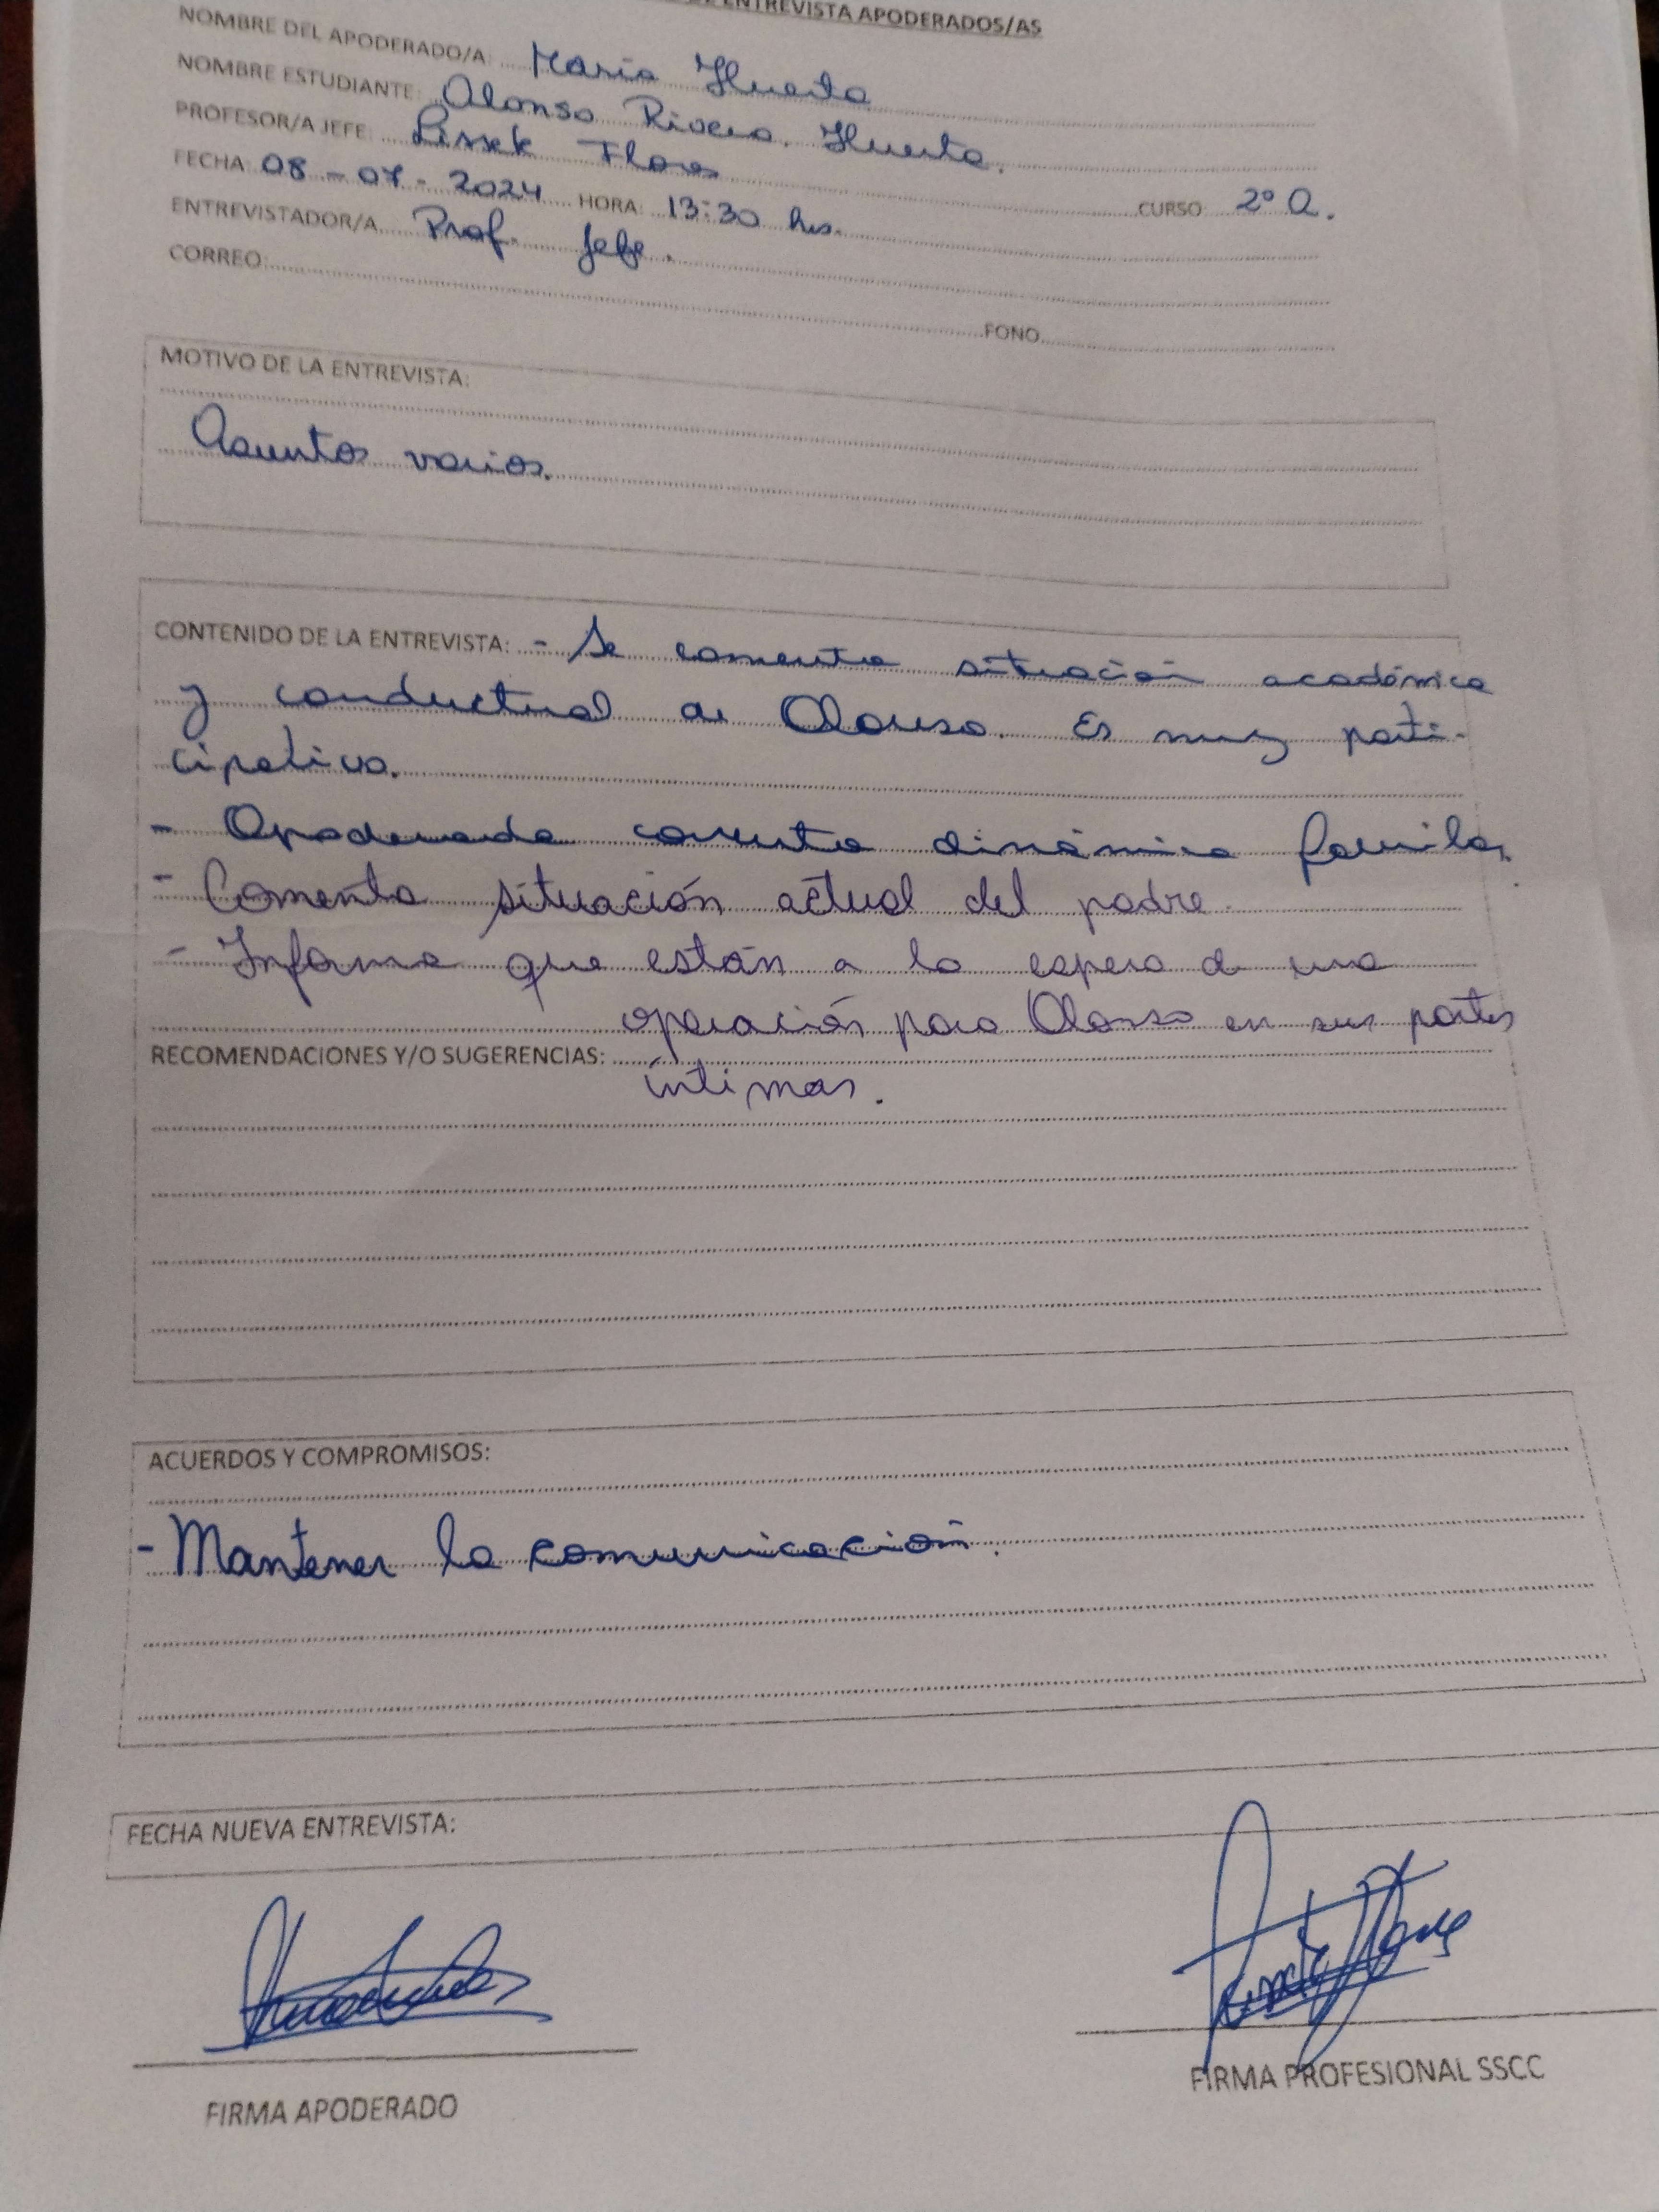 DE ENTREVISTA APODERADOS/AS
NOMBRE DEL APODERADO/A: María Huerta
NOMBRE ESTUDIANTE: Alonso Rivera Huerta.
PROFESOR/A JEFE: Lissek Flores CURSO 2º A.
FECHA: 08-07-2024 HORA: 13:30 hrs.
ENTREVISTADOR/A Prof. Jefe.
CORREO: FONO
MOTIVO DE LA ENTREVISTA:
Asuntos varios.
CONTENIDO DE LA ENTREVISTA: - Se comenta situación académica
y conductual de Alonso. Es muy parti-
cipativo.
- Apoderada comenta dinámica familiar.
- Comenta situación actual del padre.
- Informa que están a la espera de una
operación para Alonso en sus partes
RECOMENDACIONES Y/O SUGERENCIAS:
íntimas.
ACUERDOS Y COMPROMISOS:
- Mantener la comunicación.
FECHA NUEVA ENTREVISTA:
FIRMA APODERADO
FIRMA PROFESIONAL SSCC